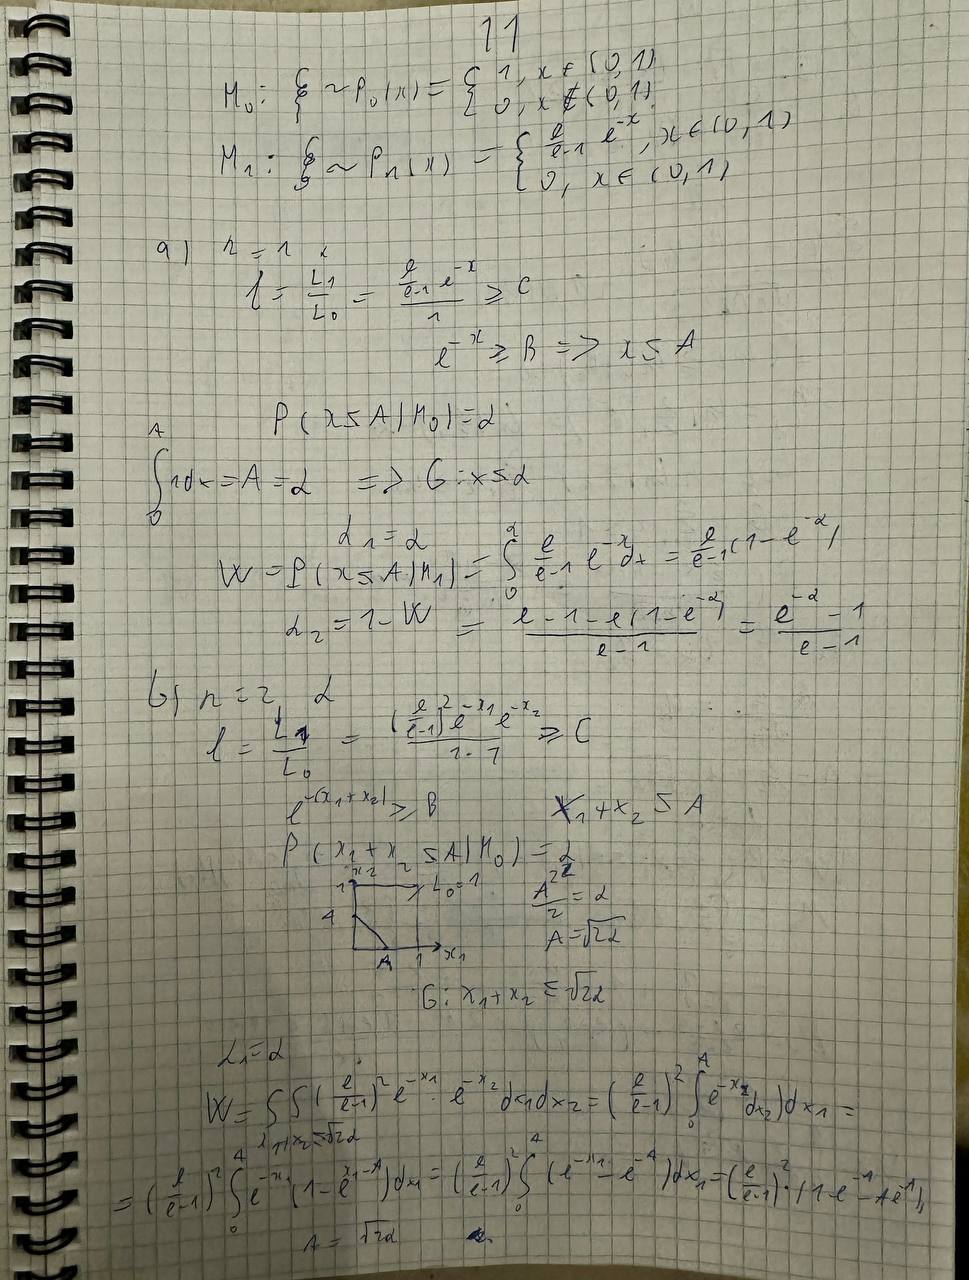 11
H₀: ξ ~ P₀(x) = { 1, x ∈ (0,1)
0, x ∉ (0,1)
H₁: ξ ~ P₁(x) = { e/(e-1) e^{-x}, x ∈ (0,1)
0, x ∈ (0,1)
a) n = 1 α
l = L₁/L₀ = (e/(e-1) e^{-x})/1 ≥ C
e^{-x} ≥ B => x ≤ A
P(x ≤ A | H₀) = α
∫₀^A 1dx = A = α => G: x ≤ α
α₁ = α
W = P(x ≤ A | H₁) = ∫₀^α e/(e-1) e^{-x} dx = e/(e-1) (1 - e^{-α})
α₂ = 1 - W = (e - 1 - e(1 - e^{-α}))/(e - 1) = (e^{-α} - 1)/(e - 1)
б) n = 2 α
l = L₁/L₀ = ((e/(e-1))² e^{-x₁} e^{-x₂})/(1·1) ≥ C
e^{-(x₁+x₂)} ≥ B x₁ + x₂ ≤ A
P(x₁ + x₂ ≤ A | H₀) = α
x₂
1 L₀ = 1 A²/2 = α
A A = √2α
A 1 x₁
G: x₁ + x₂ ≤ √2α
α₁ = α
W = ∫∫_{x₁+x₂≤√2α} (e/(e-1))² e^{-x₁} · e^{-x₂} dx₁dx₂ = (e/(e-1))² ∫₀^A e^{-x₂} dx₂) dx₁ =
= (e/(e-1))² ∫₀^A e^{-x₁} (1 - e^{x₁-A}) dx₁ = (e/(e-1))² ∫₀^A (e^{-x₁} - e^{-A}) dx₁ = (e/(e-1))² · (1 - e^{-A} - Ae^{-A}),
A = √2α